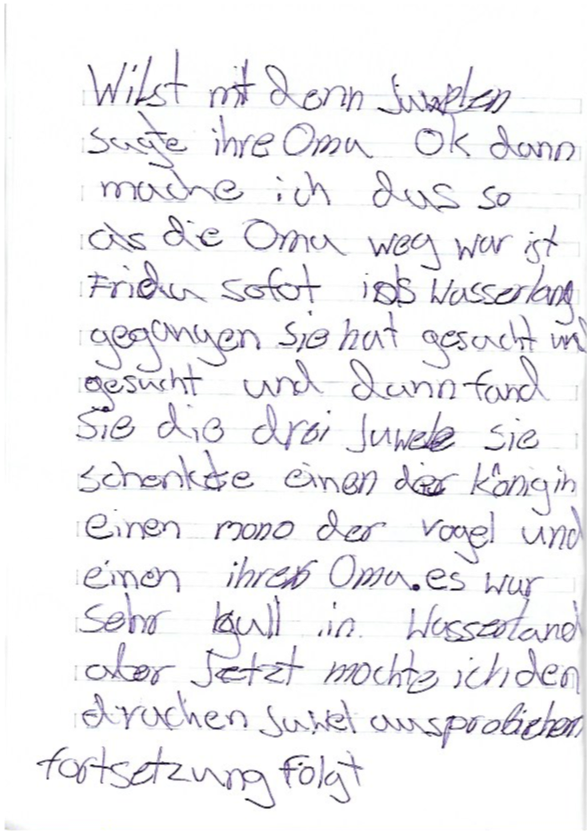 Wilst mit denn juwelen
sagte ihre Oma Ok dann
mache ich das so
als die Oma weg war ist
Frida sofot ins Wasserland
gegangen sie hat gesucht und
gesucht und dann fand
sie die drei Juwele sie
schenkte einen der Königin
einen mono der vogel und
einen ihrer Oma. es war
sehr kull in Wasserland
aber jetzt mochte ich den
drachen juwel ausprobieren
fortsetzung folgt